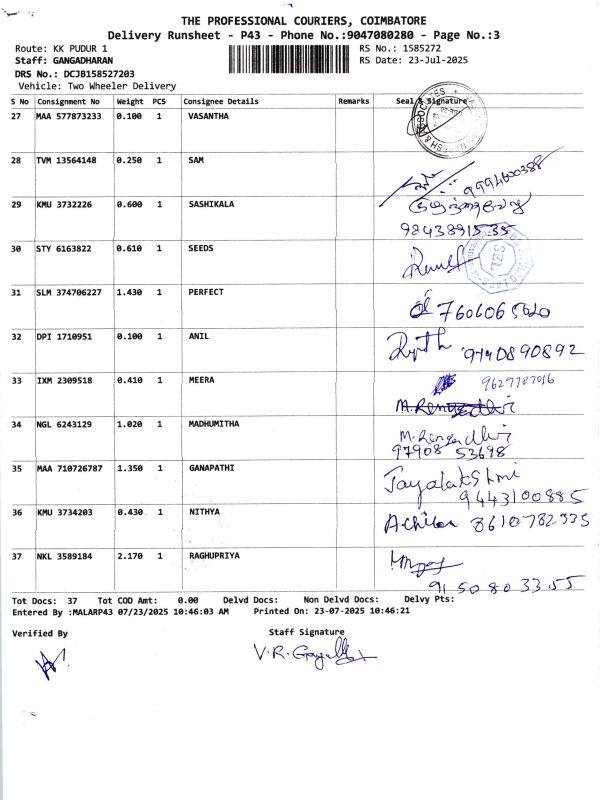 THE PROFESSIONAL COURIERS, COIMBATORE
Delivery Runsheet - P43 - Phone No.:9047080280 - Page No.:3
Route: KK PUDUR 1 RS No.: 1585272
Staff: GANGADHARAN RS Date: 23-Jul-2025
DRS No.: DCJB158527203
Vehicle: Two Wheeler Delivery
S No Consignment No Weight PCS Consignee Details Remarks Seal & Signature
27 MAA 577873233 0.100 1 VASANTHA
28 TVM 13564148 0.250 1 SAM
29 KMU 3732226 0.600 1 SASHIKALA
98438915 35
30 STY 6163822 0.610 1 SEEDS
31 SLM 374706227 1.430 1 PERFECT
32 DPI 1710951 0.100 1 ANIL
9790890892
33 IXM 2309518 0.410 1 MEERA
9627787016
34 NGL 6243129 1.020 1 MADHUMITHA
97908 53698
35 MAA 710726787 1.350 1 GANAPATHI Jayalakshmi
9443100885
36 KMU 3734203 0.430 1 NITHYA 8610782335
37 NKL 3589184 2.170 1 RAGHUPRIYA
91 50 80 33 55
Tot Docs: 37 Tot COD Amt: 0.00 Delvd Docs: Non Delvd Docs: Delvy Pts:
Entered By :MALARP43 07/23/2025 10:46:03 AM Printed On: 23-07-2025 10:46:21
Verified By Staff Signature